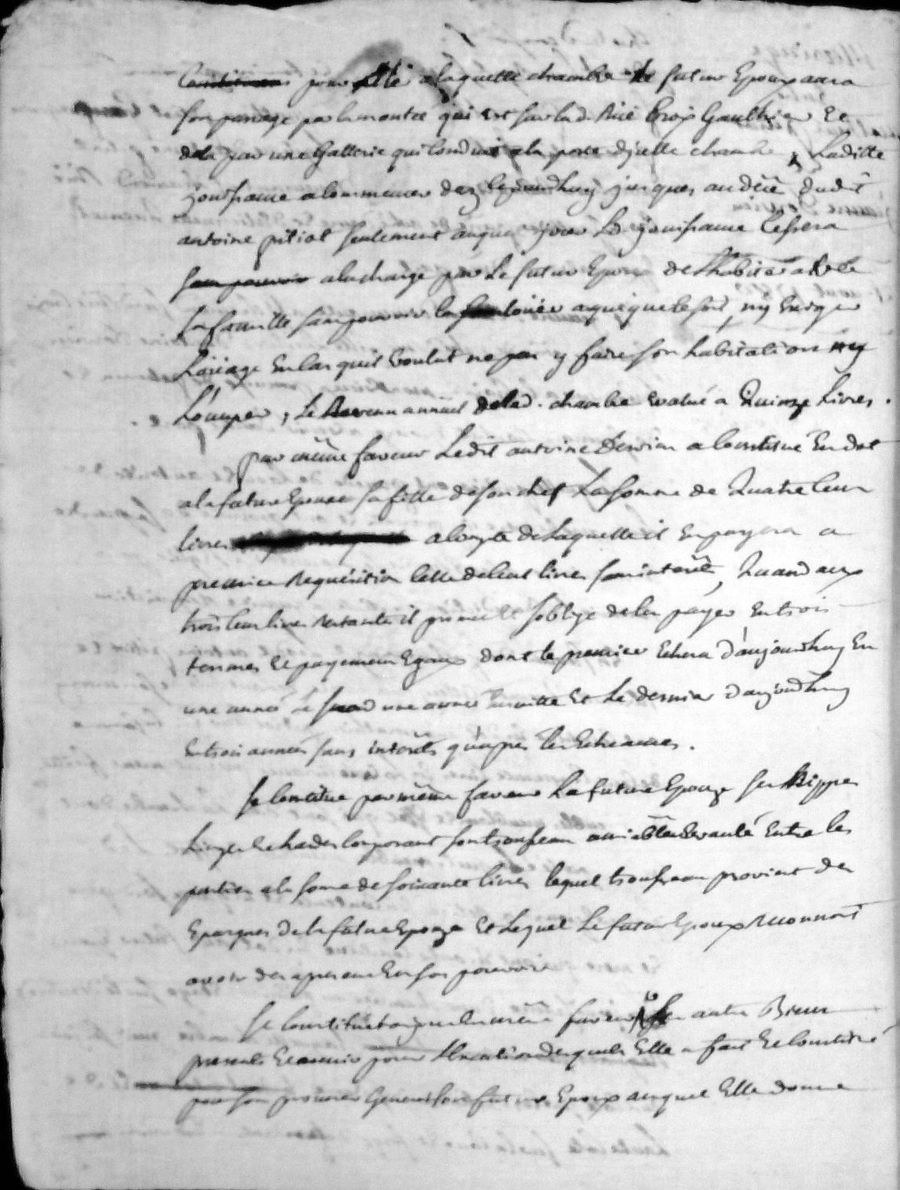 pour a laquelle chambre le futur Epoux aura
son passage par la montée qui est sur lad. Rüe Croix Gaulthier Et
dela par une Gallerie qui Conduit a la porte d'jcelle chambre, Laditte
jouissance a Commencer dez aujourdhuy jusques au décé dudit
antoine pitiot seulement auquel jour La jouissance Cessera
a la charge par Le futur Epoux de L'habiter avec
La famille sans pouvoir la louër a qui que ce soit, ny Exiger
En Cas qu'il Voulut ne pas y faire son habitation ny
L'ocuper, Le Revenu annuel de lad. chambre Evalué a Quinze Livres.
par même faveur Ledit antoine a Constitué En dot
a la future Epouze sa fille de son chef La somme de Quatre Cent
livres a Compte de Laquelle il En payera a
premiere Requisition Celle de Cent livres sans interêts, Quand aux
trois Cent livres Restante il promet et s'oblige de les payer En trois
termes Et payements Egaux dont le premier Echera d'aujourdhuy En
une année le second une année Ensuitte Et Le dernier d'aujourdhuy
En trois années sans interêts qu'apres les Echeances.
Se Constitue par même faveur La future Epouze ses Nippes
Linges Et hardes Composant son trousseau amiablement Evalué Entre les
parties a la somme de soixante livres lequel trousseau provient des
Epargnes de la future Epouze Et Lequel Le futur Epoux Reconnoit
avoir des apresent En son pouvoir
Se Constitue En même faveur autres Biens
presents Et avenir pour L'exaction desquels Elle a fait Et Constitué
pour son procureur General son futur Epoux auquel Elle donne